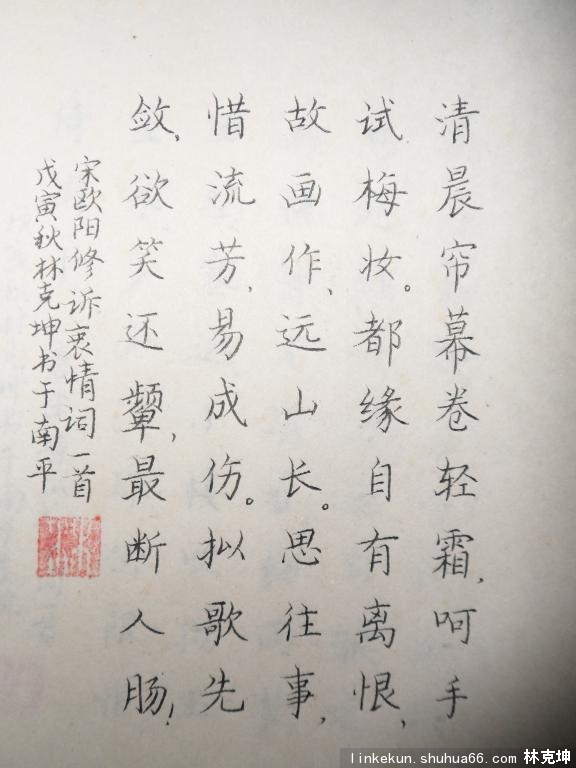 清晨帘幕卷轻霜，呵手
试梅妆。都缘自有离恨，
故画作、远山长。思往事，
惜流芳，易成伤。拟歌先
敛，欲笑还颦，最断人肠！
宋欧阳修诉衷情词一首
戊寅秋林克坤书于南平
linkekun.shuhua66.com 林克坤